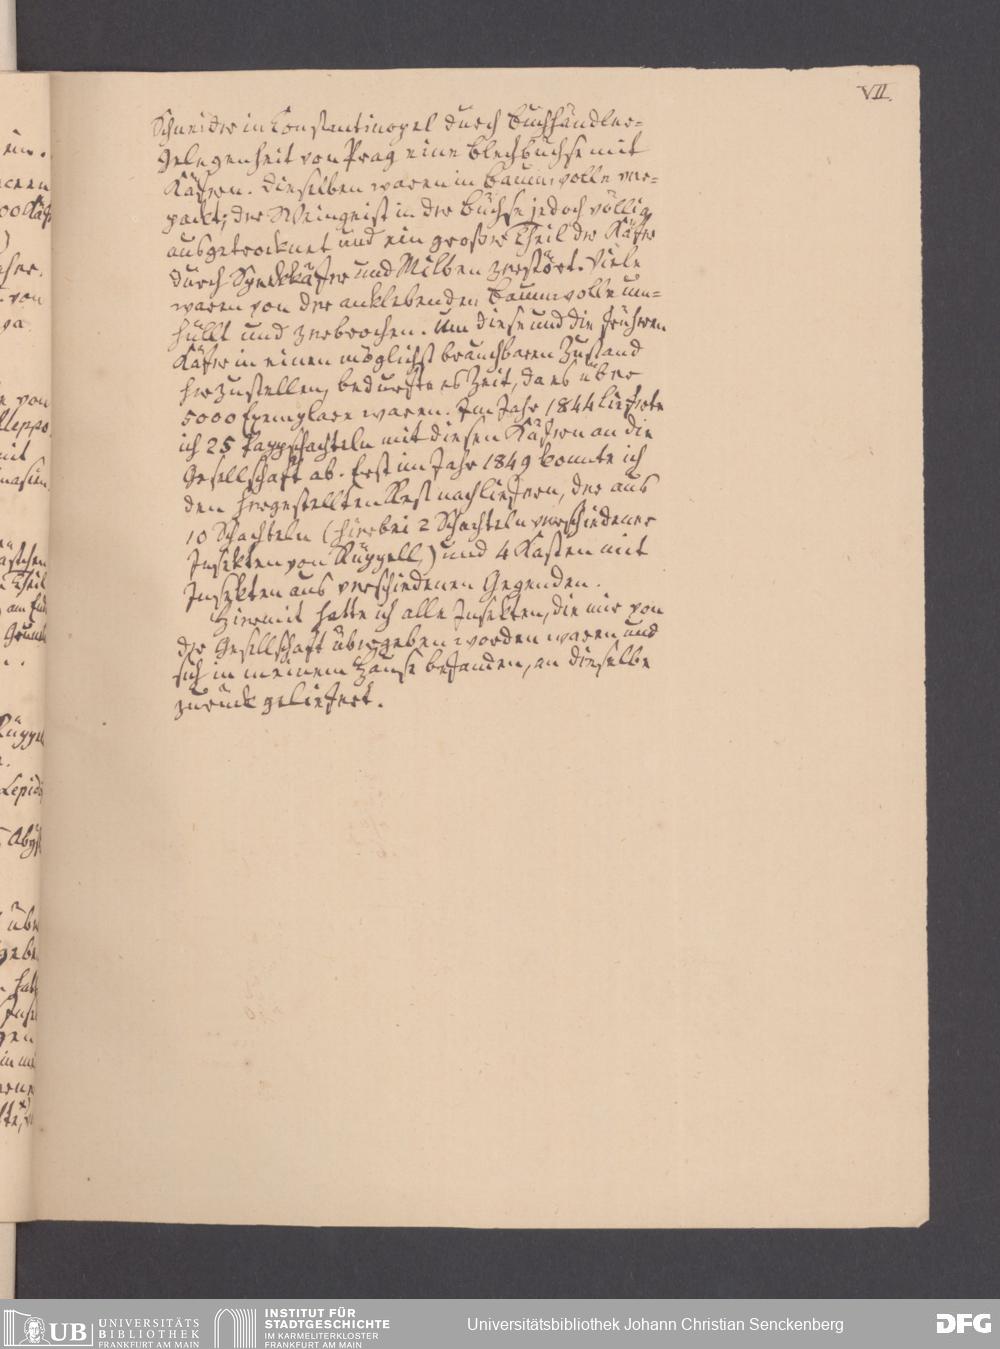 VII.
Schneider in Constantinopel durch Buchhändler-
gelegenheit von Prag eine Blechbüchse mit
Käfern. Dieselben waren in Baumwolle ver-
packt; der Weingeist in der Büchse jedoch völlig
ausgetrocknet und ein großer Theil der Käfer
durch Speckkäfer und Milben zerstört. Viele
waren von der anklebenden Baumwolle um-
hüllt und zerbrochen. Um diese und die früheren
Käfer in einen möglichst brauchbaren Zustand
herzustellen, bedurfte es Zeit, da es über
5000 Exemplare waren. Im Jahr 1844 lieferte
ich 25 Pappschachteln mit diesen Käfern an die
Gesellschaft ab. Erst im Jahr 1849 konnte ich
den hergestellten Rest nachliefern, der aus
10 Schachteln (hierbei 2 Schachteln verschiedener
Insekten von Rüppell,) und 4 Kasten mit
Insekten aus verschiedenen Gegenden.
Hiermit hatte ich alle Insekten, die mir von
der Gesellschaft übergeben worden waren und
sich in meinem Hause befanden, an dieselbe
zurück geliefert.
UB UNIVERSITÄTS
BIBLIOTHEK
FRANKFURT AM MAIN
INSTITUT FÜR
STADTGESCHICHTE
IM KARMELITERKLOSTER
FRANKFURT AM MAIN
Universitätsbibliothek Johann Christian Senckenberg
DFG